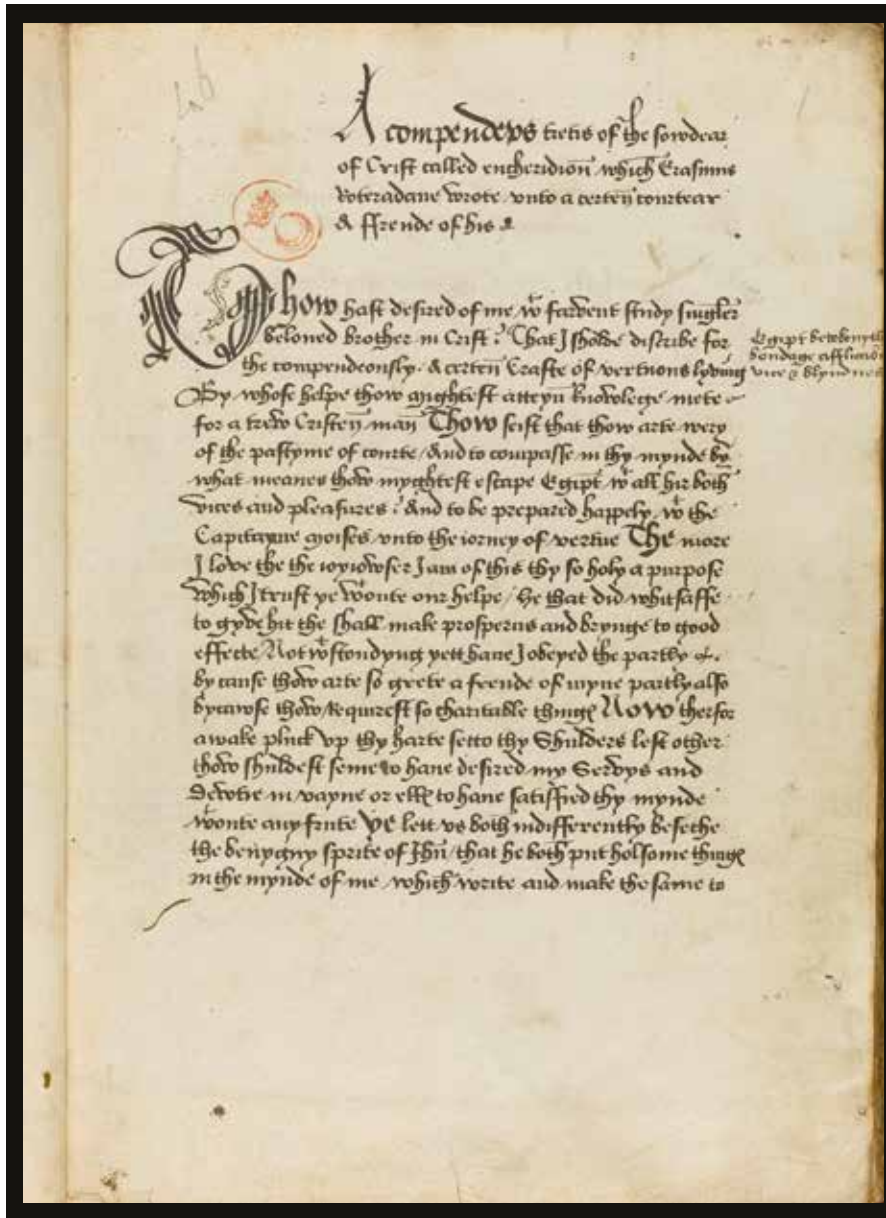 A compendeus tretis of the sowdear
of Crist called encheridion which Erasmus
Roteradame wrote vnto a certen courtear
& ffrende of his
Thow hast desired of me wt farvent study singler
beloued brother in Crist / That I sholde discribe for
the compendeously. A certen Crafte of vertuous lyving
By whose helpe thow mightest atteyn knowlege mete
for a trew Cristen man Thow seist that thow arte wery
of the pastyme of courte And to compasse in thy mynde by
what meanes thow myghtest escape Egipt wt all hir both
vices and pleasures / And to be prepared happely wt the
Capitayne moises vnto the iorney of vertue The more
I love the the ioyiowser I am of this thy so holy a purpose
Which I trust ye wtoute our helpe / he that did whitsaffe
to gyve hit the shall make prosperus and brynge to good
effecte Not wtstondyng yett haue I obeyed the partly
by cause thow arte so grete a frende of myne partly also
bycawse thow requirest so charitable things Now therfor
awake pluck vp thy harte setto thy Shulders lest other
thow shuldest seme to haue desired my Servys and
Dewtie in vayne or elles to haue satisfied thy mynde
wtoute any frute Ye lett vs both indifferently beseche
the benygny sprite of Jhu that he both put holsome things
in the mynde of me which write and make the same to
Egipt betokenyth
bondage afflicio
vice & blyndnes